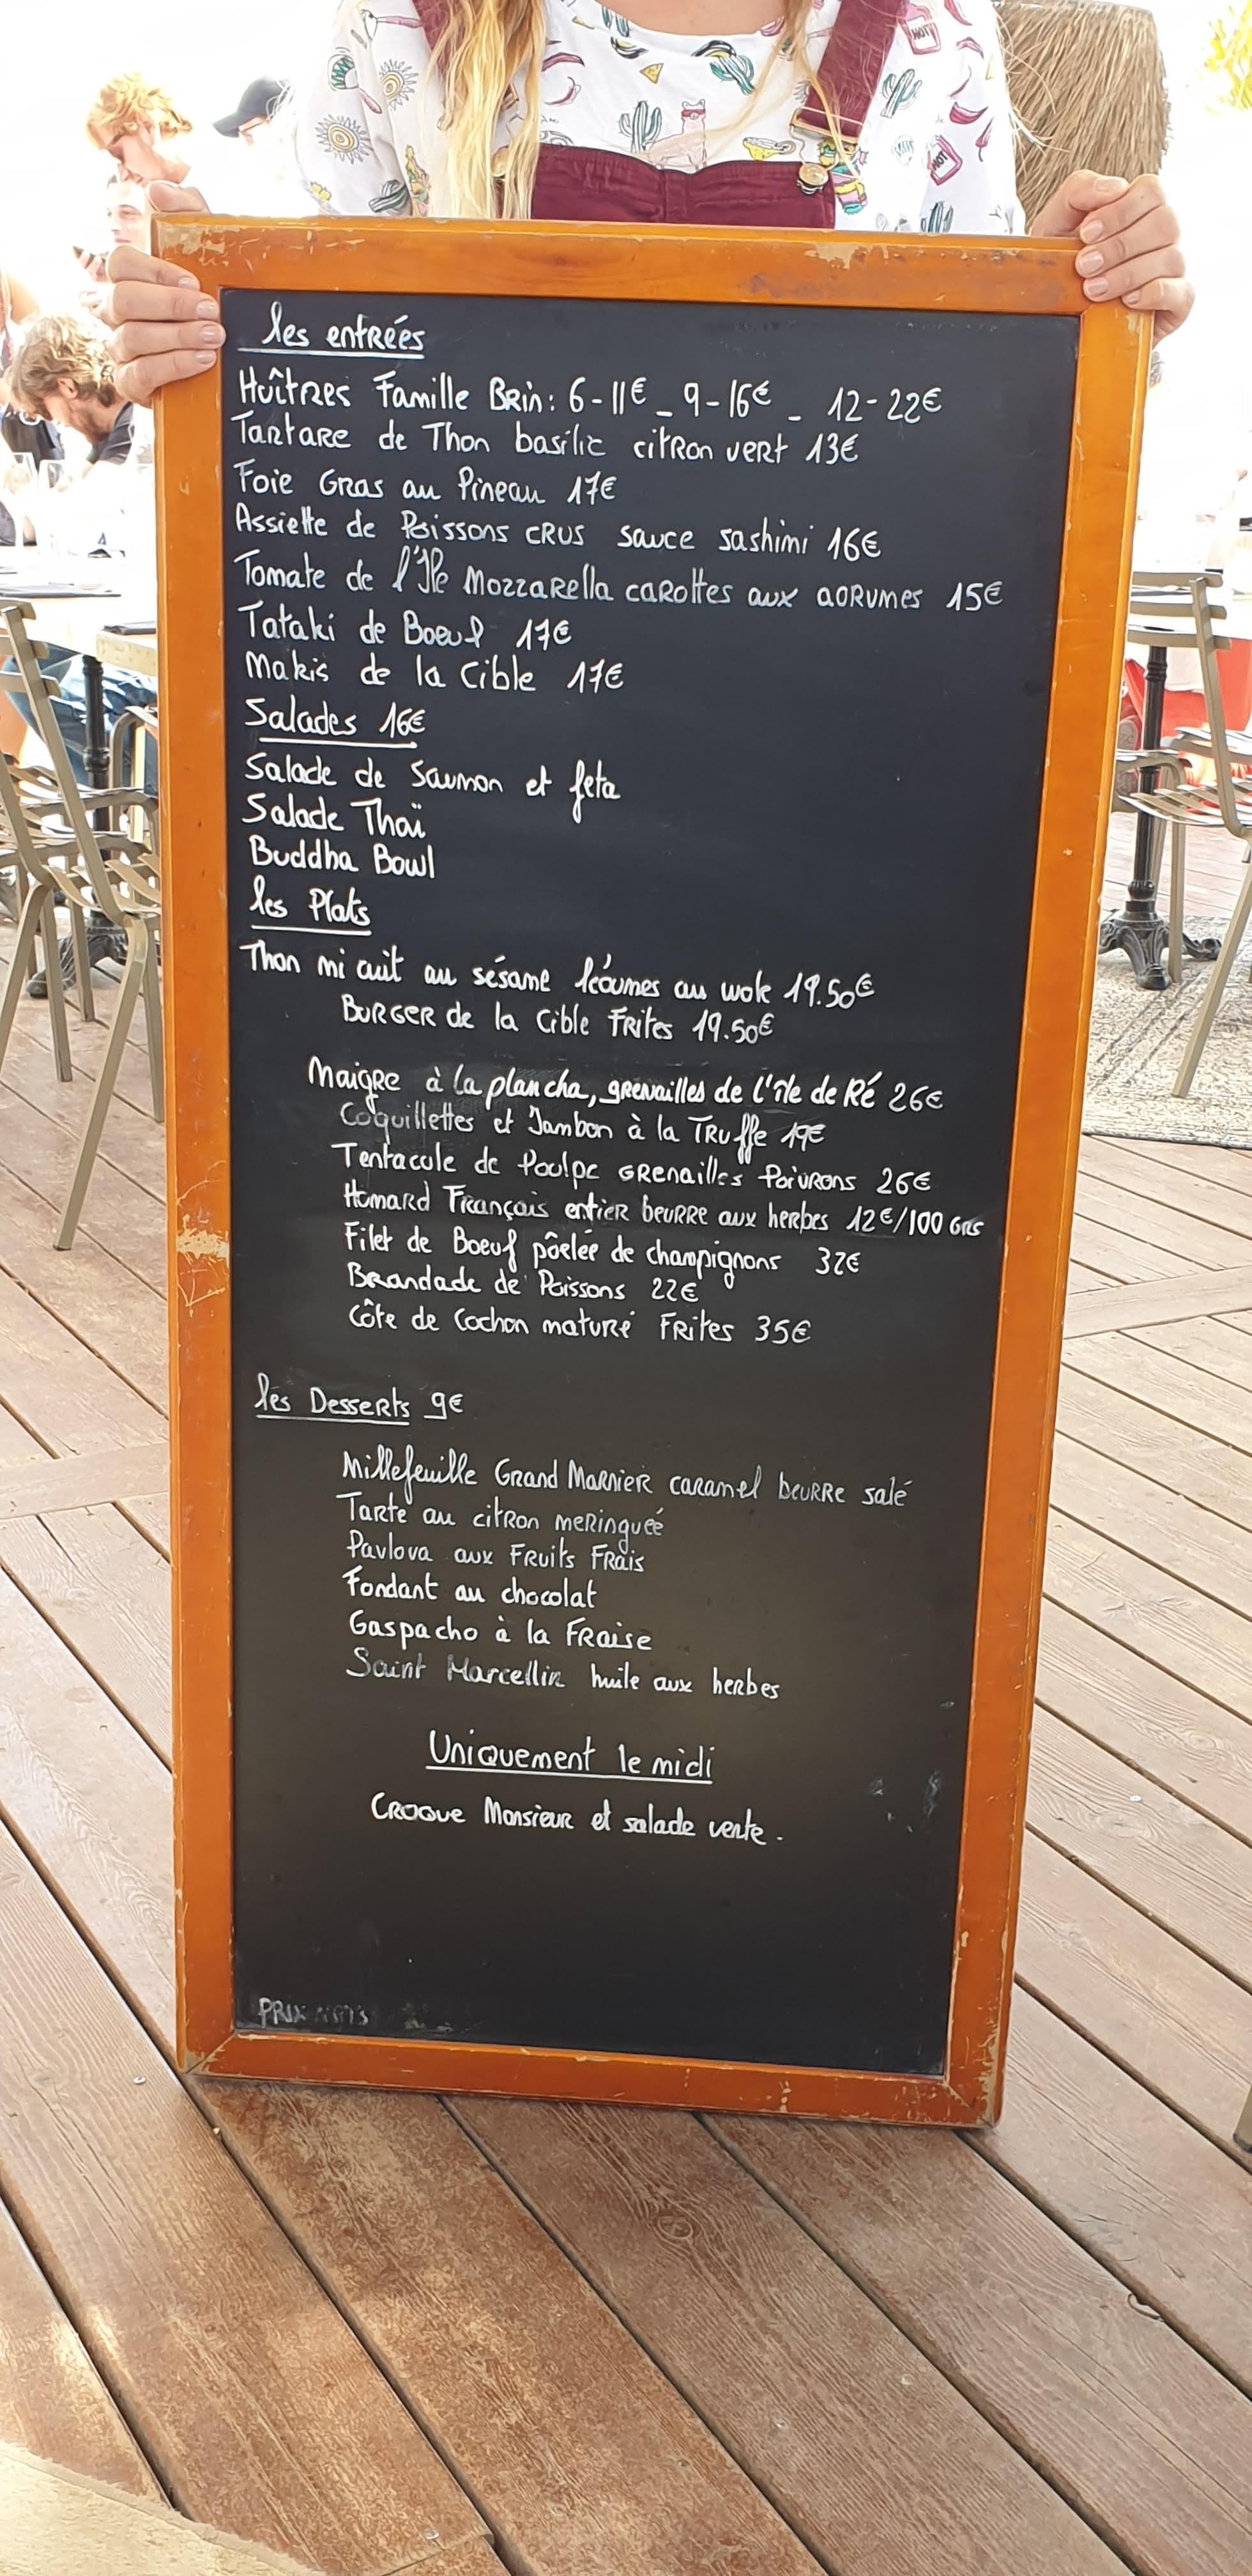 les entrées
Huîtres Famille Brin: 6-11€ - 9-16€ - 12-22€
Tartare de Thon basilic citron vert 13€
Foie Gras au Pineau 17€
Assiette de Poissons crus sauce sashimi 16€
Tomate de l'Ile Mozzarella carottes aux agrumes 15€
Tataki de Boeuf 17€
Makis de la Cible 17€
Salades 16€
Salade de Saumon et feta
Salade Thaï
Buddha Bowl
les Plats
Thon mi cuit au sésame légumes au wok 19.50€
Burger de la Cible Frites 19.50€
Maigre à la plancha, grenailles de l'île de Ré 26€
Coquillettes et Jambon à la Truffe 19€
Tentacule de Poulpe Grenailles Poivrons 26€
Homard Français entier beurre aux herbes 12€/100 Grs
Filet de Boeuf pôelée de champignons 32€
Brandade de Poissons 22€
Côte de Cochon maturé Frites 35€
les Desserts 9€
Millefeuille Grand Marnier caramel beurre salé
Tarte au citron meringuée
Pavlova aux Fruits Frais
Fondant au chocolat
Gaspacho à la Fraise
Saint Marcellin huile aux herbes
Uniquement le midi
Croque Monsieur et salade verte.
PRIX
HOT
HOT